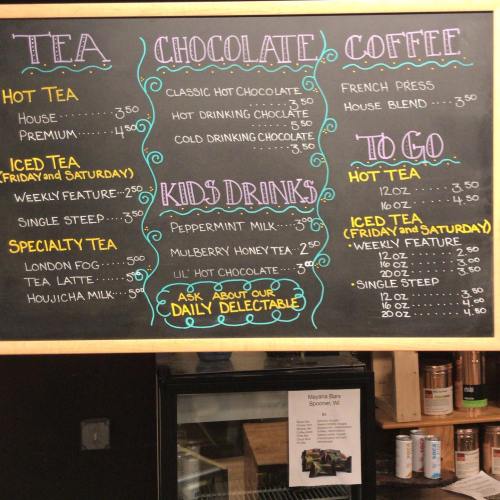 TEA
HOT TEA
HOUSE ........ 3.50
PREMIUM ..... 4.50
ICED TEA
(FRIDAY and SATURDAY)
WEEKLY FEATURE ... 2.50
SINGLE STEEP .... 3.50
SPECIALTY TEA
LONDON FOG ..... 5.00
TEA LATTE ...... 5.00
HOUJICHA MILK .... 5.00
CHOCOLATE
CLASSIC HOT CHOCOLATE
........ 3.50
HOT DRINKING CHOCLATE
........ 5.50
COLD DRINKING CHOCOLATE
........ 3.50
KIDS DRINKS
PEPPERMINT MILK .... 3.00
MULBERRY HONEY TEA .. 2.50
LIL' HOT CHOCOLATE .... 3.00
ASK ABOUT OUR
DAILY DELECTABLE
COFFEE
FRENCH PRESS
HOUSE BLEND .... 3.50
TO GO
HOT TEA
12 OZ ...... 3.50
16 OZ ...... 4.50
ICED TEA
(FRIDAY and SATURDAY)
• WEEKLY FEATURE
12 OZ ...... 2.50
16 OZ ...... 3.00
20 OZ ...... 3.50
• SINGLE STEEP
12 OZ ...... 3.50
16 OZ ...... 4.00
20 OZ ...... 4.50
Mayana Bars
Spooner, WI